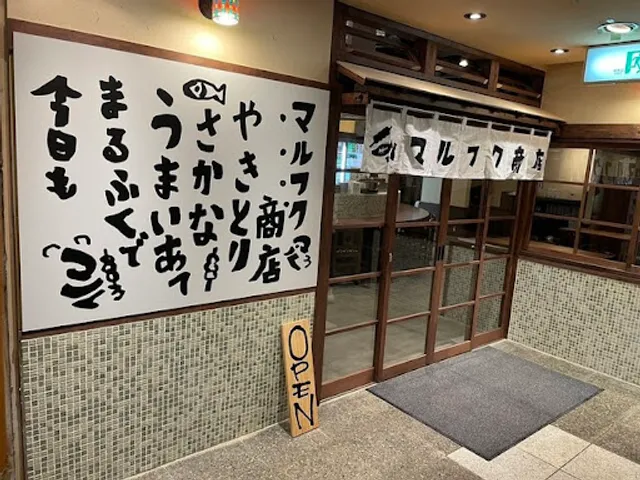 マルフク商店
やきとり
さかな
うまいあて
まるふくで
今日も
マルフク商店
OPEN